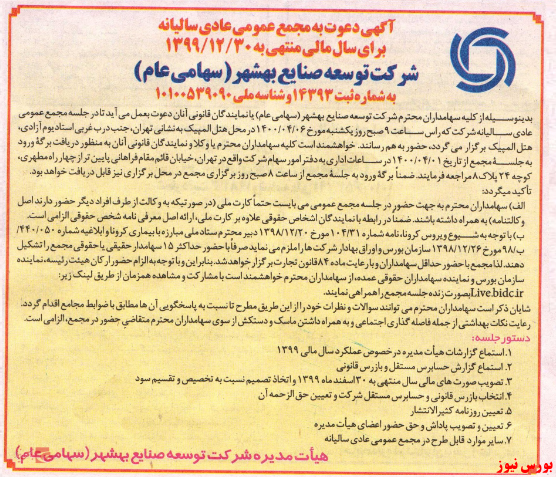 آگهی دعوت به مجمع عمومی عادی سالیانه
برای سال مالی منتهی به ۱۳۹۹/۱۲/۳۰
شرکت توسعه صنایع بهشهر (سهامی عام)
به شماره ثبت ۱۴۳۹۳ و شناسه ملی ۱۰۱۰۰۵۳۹۰۹۰
بدینوسیله از کلیه سهامداران محترم شرکت توسعه صنایع بهشهر (سهامی عام) یا نمایندگان قانونی آنان دعوت بعمل می آید تا در جلسه مجمع عمومی
عادی سالیانه شرکت که راس ساعت ۹ صبح روز یکشنبه مورخ ۱۴۰۰/۰۴/۰۶ در محل هتل المپیک به نشانی تهران، جنب درب غربی استادیوم آزادی،
هتل المپیک برگزار می گردد، حضور به هم رسانند. خواهشمند است کلیه سهامداران محترم یا وکلا و نمایندگان قانونی آنان به منظور دریافت برگه ورود
به جلسه مجمع از تاریخ ۱۴۰۰/۰۴/۰۱ در ساعات اداری به دفتر امور سهام شرکت واقع در تهران، خیابان قائم مقام فراهانی پایین تر از چهار راه مطهری،
کوچه ۲۴ پلاک ۸ مراجعه فرمایند. ضمناً برگه ورود به جلسه مجمع از ساعت ۸ صبح روز برگزاری مجمع در محل برگزاری نیز قابل دریافت خواهد بود.
تأکید میگردد:
الف) سهامداران محترم به جهت حضور در جلسه مجمع عمومی می بایست حتماً کارت ملی (در صورتیکه به وکالت از طرف افراد دیگر حضور دارند اصل
وکالتنامه) به همراه داشته باشند. ضمنا در رابطه با نمایندگان اشخاص حقوقی علاوه بر کارت ملی، ارائه اصل معرفی نامه شخص حقوقی الزامی است.
ب) با توجه به شیوع ویروس کرونا، نامه شماره ۱۰۴/۳۱ مورخ ۱۳۹۸/۱۲/۲۰ دبیر محترم ستاد ملی مبارزه با بیماری کرونا و ابلاغیه شماره ۴۴۰/۰۵۰/
ب/۹۸ مورخ ۱۳۹۸/۱۲/۲۶ سازمان بورس و اوراق بهادار شرکت ها را ملزم می نماید صرفاً با حضور حداکثر ۱۵ سهامدار حقیقی یا حقوقی مجمع را تشکیل
دهند. لذا مجمع با حضور حداقل سهامداران و با رعایت ماده ۸۴ قانون تجارت برگزار خواهد شد. بنابراین و با توجه به الزام حضور ارکان هیئت رئیسه، نماینده
سازمان بورس و نماینده سهامداران حقوقی عمده، از سهامداران محترم خواهشمند است با مشارکت و مشاهده همزمان از طریق لینک زیر:
Live.bidc.ir بصورت زنده جلسه مجمع را همراهی نمایند.
شایان ذکر است سهامداران محترم می توانند سوالات و نظرات خود را از این طریق مطرح تا نسبت به پاسخگویی آن ها مطابق با ضوابط مجامع اقدام گردد.
رعایت نکات بهداشتی از جمله فاصله گذاری اجتماعی و به همراه داشتن ماسک و دستکش از سوی سهامداران محترم متقاضی حضور در مجمع، الزامی است.
دستور جلسه:
۱. استماع گزارشات هیأت مدیره در خصوص عملکرد سال مالی ۱۳۹۹
۲. استماع گزارش حسابرس مستقل و بازرس قانونی
۳. تصویب صورت های مالی سال منتهی به ۳۰ اسفند ماه ۱۳۹۹ و اتخاذ تصمیم نسبت به تخصیص و تقسیم سود
۴. انتخاب بازرس قانونی و حسابرس مستقل شرکت و تعیین حق الزحمه آن
۵. تعیین روزنامه کثیرالانتشار
۶. تعیین و تصویب پاداش و حق حضور اعضای هیأت مدیره
۷. سایر موارد قابل طرح در مجمع عمومی عادی سالیانه
هیأت مدیره شرکت توسعه صنایع بهشهر (سهامی عام)
بورس نیوز